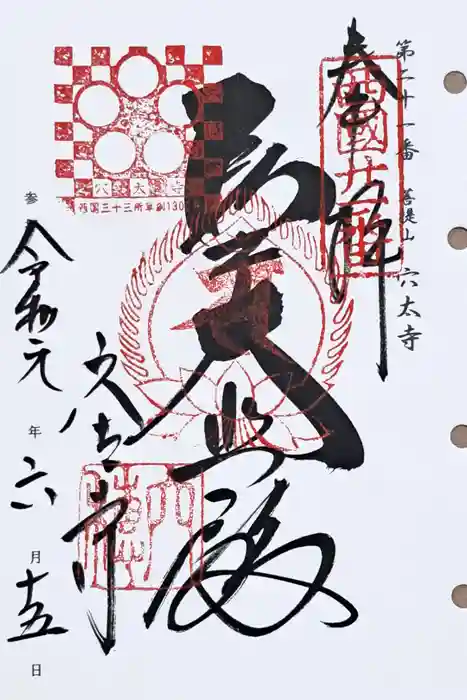 第二十一番 菩提山 穴太寺
奉拝
西國廿一番
聖大悲殿
穴太寺
西国三十三所草創1300
穴太寺
参 令和元年六月十五日